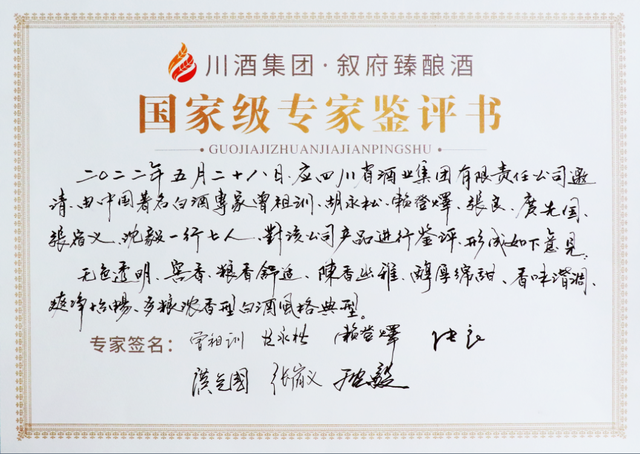 川酒集团·叙府臻酿酒
国家级专家鉴评书
GUOJIAJIZHUANJIAJIANPINGSHU
二〇二二年五月二十八日，应四川省酒业集团有限责任公司邀
请，由中国著名白酒专家曾祖训、胡永松、赖登燡、张良、庹先国、
张宿义、沈毅一行七人，對该公司产品进行鉴评，形成如下意見：
无色透明、窖香、粮香舒适、陳香幽雅、醇厚绵甜、香味谐调、
爽净怡暢、多粮浓香型白酒風格典型。
专家签名：曾祖训 胡永松 赖登燡 张良
庹先國 张宿义 沈毅